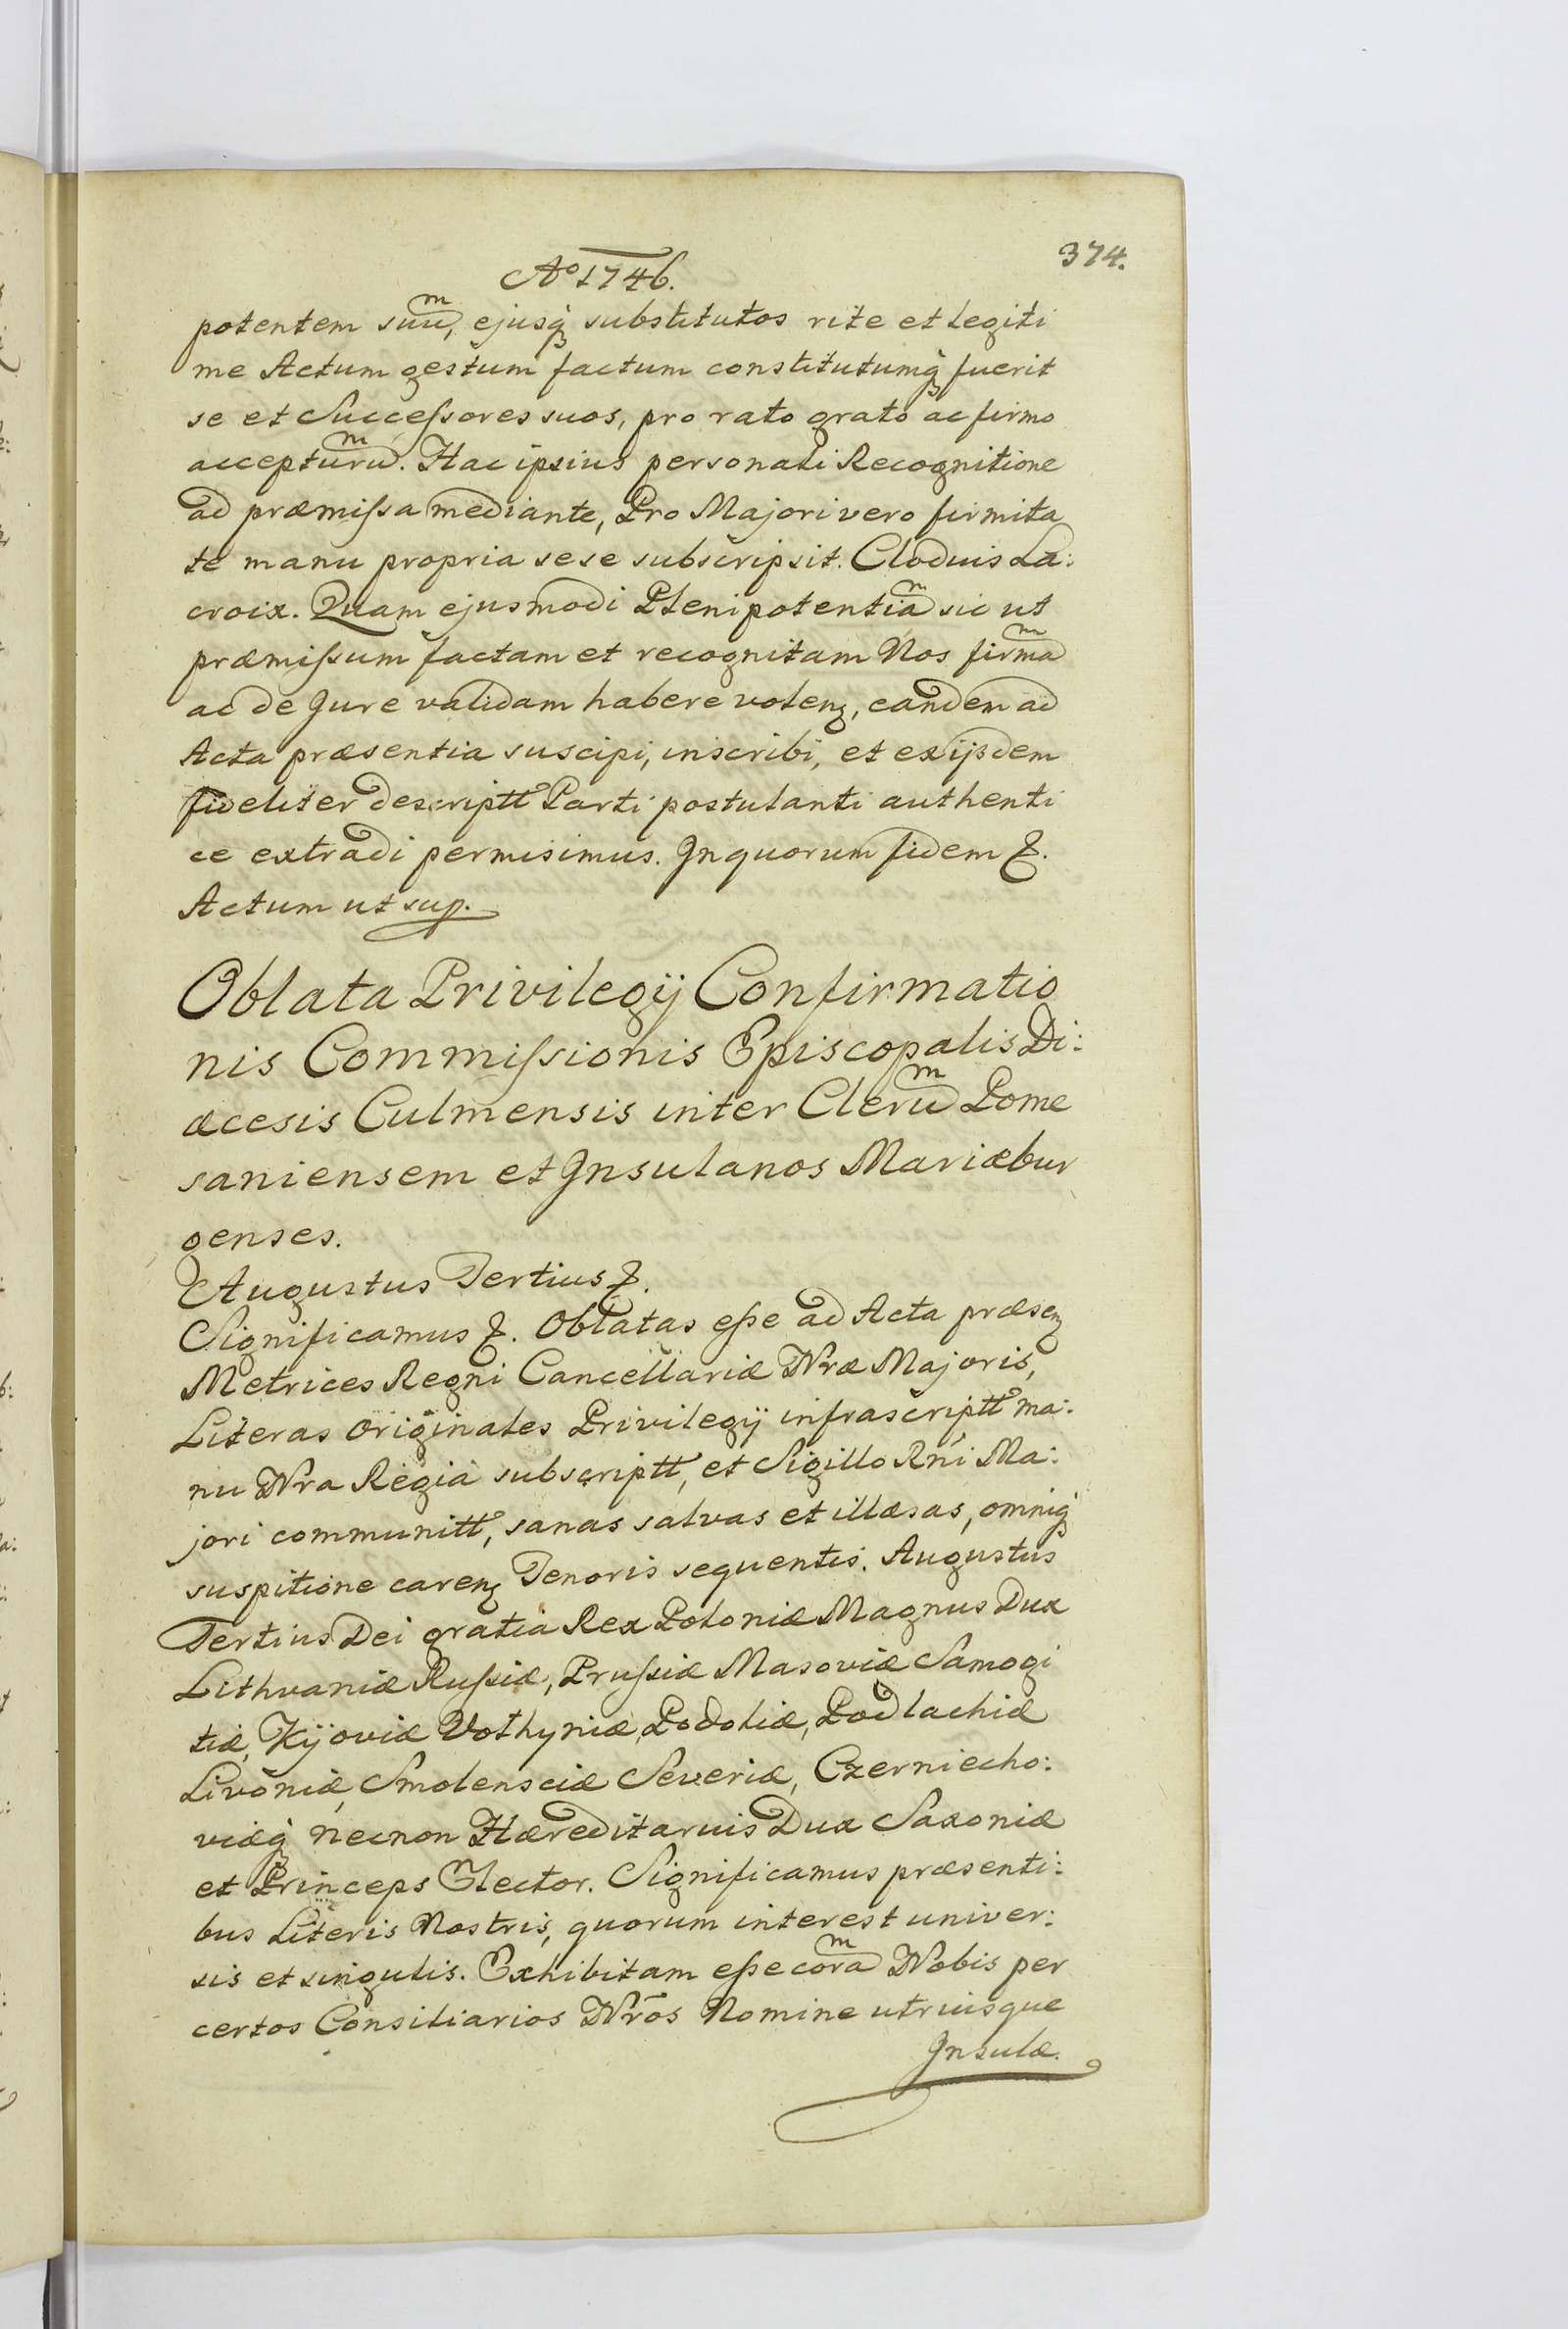 374.
Aº 1746.
potentem suum, ejusq̃ substitutos rite et legiti
me Actum gestum factum constitutumq̃ fuerit
se et Successores suos, pro rato grato ac firmo
accepturum. Hac ipsius personali Recognitione
ad præmissa mediante, Pro Majori vero firmita
te manu propria sese subscripsit. Clodius La:
croix. Quam ejusmodi Plenipotentiam sic ut
præmissum factam et recognitam Nos firmam
ac de Jure validam habere volenȝ, eandem ad
Acta præsentia suscipi, inscribi, et ex ijsdem
fideliter descriptt Parti postulanti authenti
ce extradi permisimus. In quorum fidem ꝛ.
Actum ut sup.
Oblata Privilegij Confirmatio
nis Commissionis Episcopalis Di:
æcesis Culmensis inter Clerum Pome
saniensem et Insulanos Mariæbur
genses.
Augustus Tertius ꝛ.
Significamus ꝛ. Oblatas esse ad Acta præsenȝ
Metrices Regni Cancellariæ Nræ Majoris,
Literas originales Privilegij infrascriptt ma:
nu Nra Regia subscriptt, et Sigillo Rni Ma:
jori communitt, sanas salvas et illæsas, omniq̃
suspitione carenȝ Tenoris sequentis. Augustus
Tertius Dei gratia Rex Poloniæ Magnus Dux
Lithvaniæ Russiæ, Prussiæ Masoviæ Samogi
tiæ, Kijoviæ Volhyniæ, Podoliæ, Podlachiæ
Livoniæ, Smolensciæ Severiæ, Czerniecho:
viæq̃ necnon Hæreditarius Dux Saxoniæ
et Princeps Elector. Significamus præsenti:
bus Literis Nostris, quorum interest univer:
sis et singulis. Exhibitam esse coram Nobis per
certos Consiliarios Nr̃os Nomine utriusque
Insulæ.